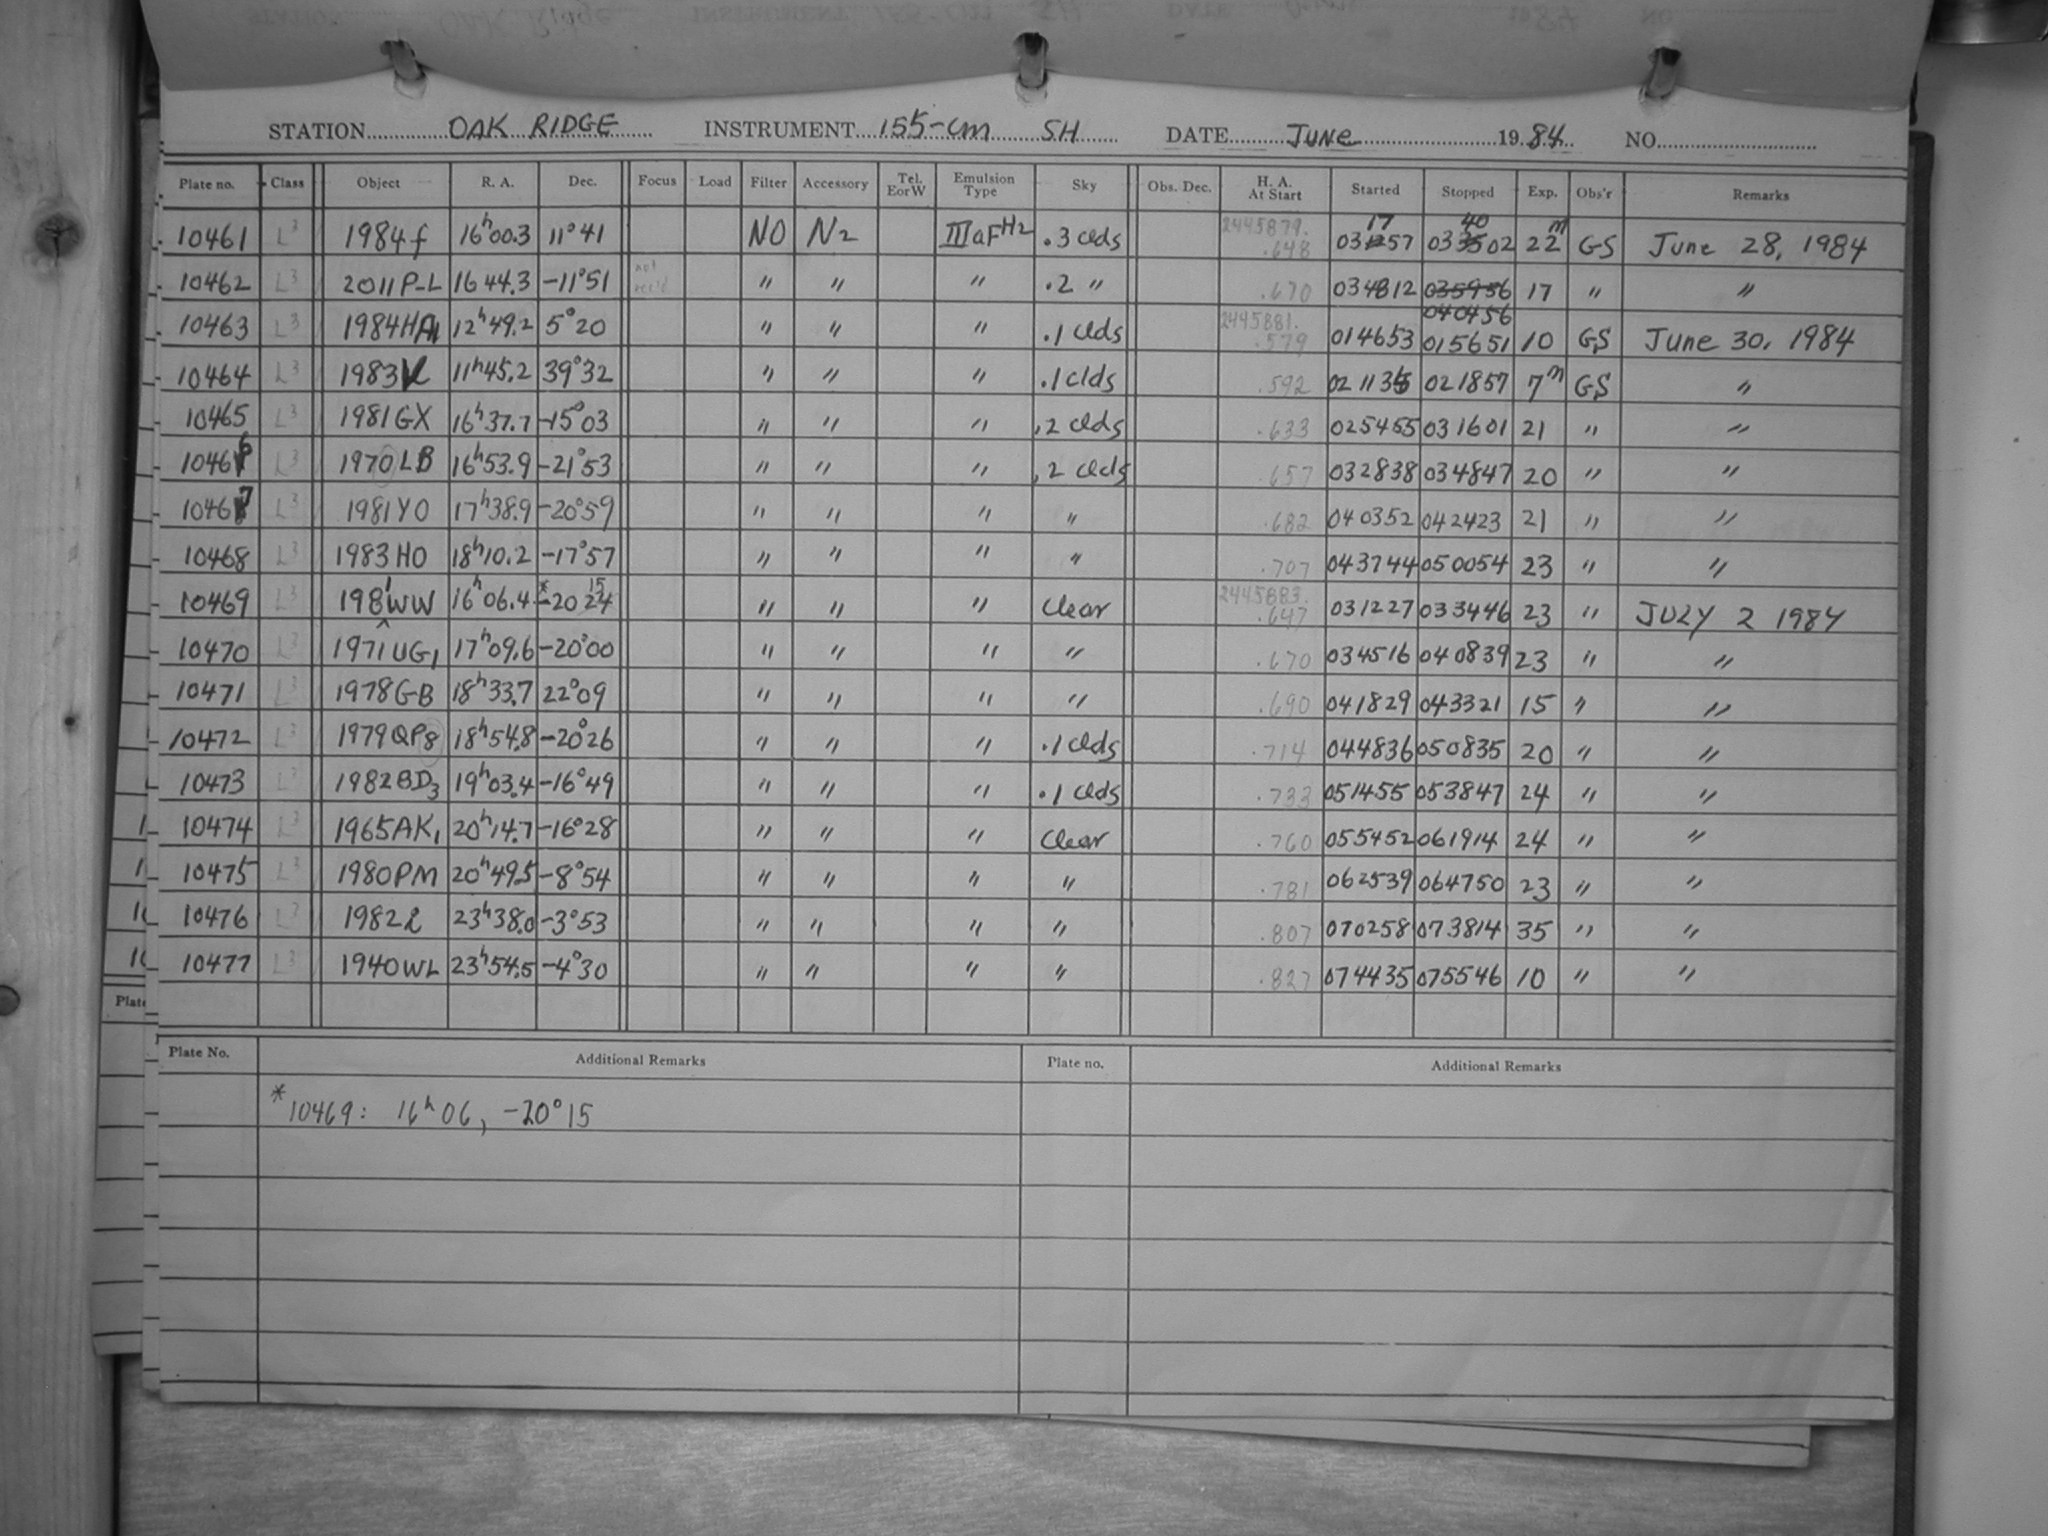 STATION OAK RIDGE INSTRUMENT 155-cm SH DATE JUNE 1984 NO.
Plate no. Class Object R. A. Dec. Focus Load Filter Accessory Tel. E or W Emulsion Type Sky Obs. Dec. H. A. At Start Started Stopped Exp. Obs'r Remarks
10461 L3 1984f 16h00.3 11°41 NO N2 IIIaF H2 .3 clds 2445879.648 031757 034002 22m GS June 28, 1984
10462 L3 2011P-L 16 44.3 -11°51 not rec'd " " " .2 " .670 034812 035956 040456 17 " "
10463 L3 1984HA1 12h49.2 5°20 " " " .1 clds 2445881.579 014653 015651 10 GS June 30, 1984
10464 L3 1983 11h45.2 39°32 " " " .1 clds .592 021135 021857 7m GS "
10465 L3 1981GX 16h37.7 -15°03 " " " .2 clds .633 025455 031601 21 " "
10466 L3 1970LB 16h53.9 -21°53 " " " .2 clds .657 032838 034847 20 " "
10467 L3 1981YO 17h38.9 -20°59 " " " " .682 040352 042423 21 " "
10468 L3 1983HO 18h10.2 -17°57 " " " " .707 043744 050054 23 " "
10469 L3 1981WW 16h06.4 * -20 15 24 " " " Clear 2445883.647 031227 033446 23 " JULY 2 1984
10470 L3 1971UG1 17h09.6 -20°00 " " " " .670 034516 040839 23 " "
10471 L3 1978GB 18h33.7 22°09 " " " " .690 041829 043321 15 " "
10472 L3 1979QP8 18h54.8 -20°26 " " " .1 clds .714 044836 050835 20 " "
10473 L3 1982BD3 19h03.4 -16°49 " " " .1 clds .733 051455 053847 24 " "
10474 L3 1965AK1 20h14.7 -16°28 " " " Clear .760 055452 061914 24 " "
10475 L3 1980PM 20h49.5 -8°54 " " " " .781 062539 064750 23 " "
10476 L3 1982 23h38.0 -3°53 " " " " .807 070258 073814 35 " "
10477 L3 1940WL 23h54.5 -4°30 " " " " .827 074435 075546 10 " "
Plate No. Additional Remarks Plate no. Additional Remarks
*10469: 16h06, -20°15